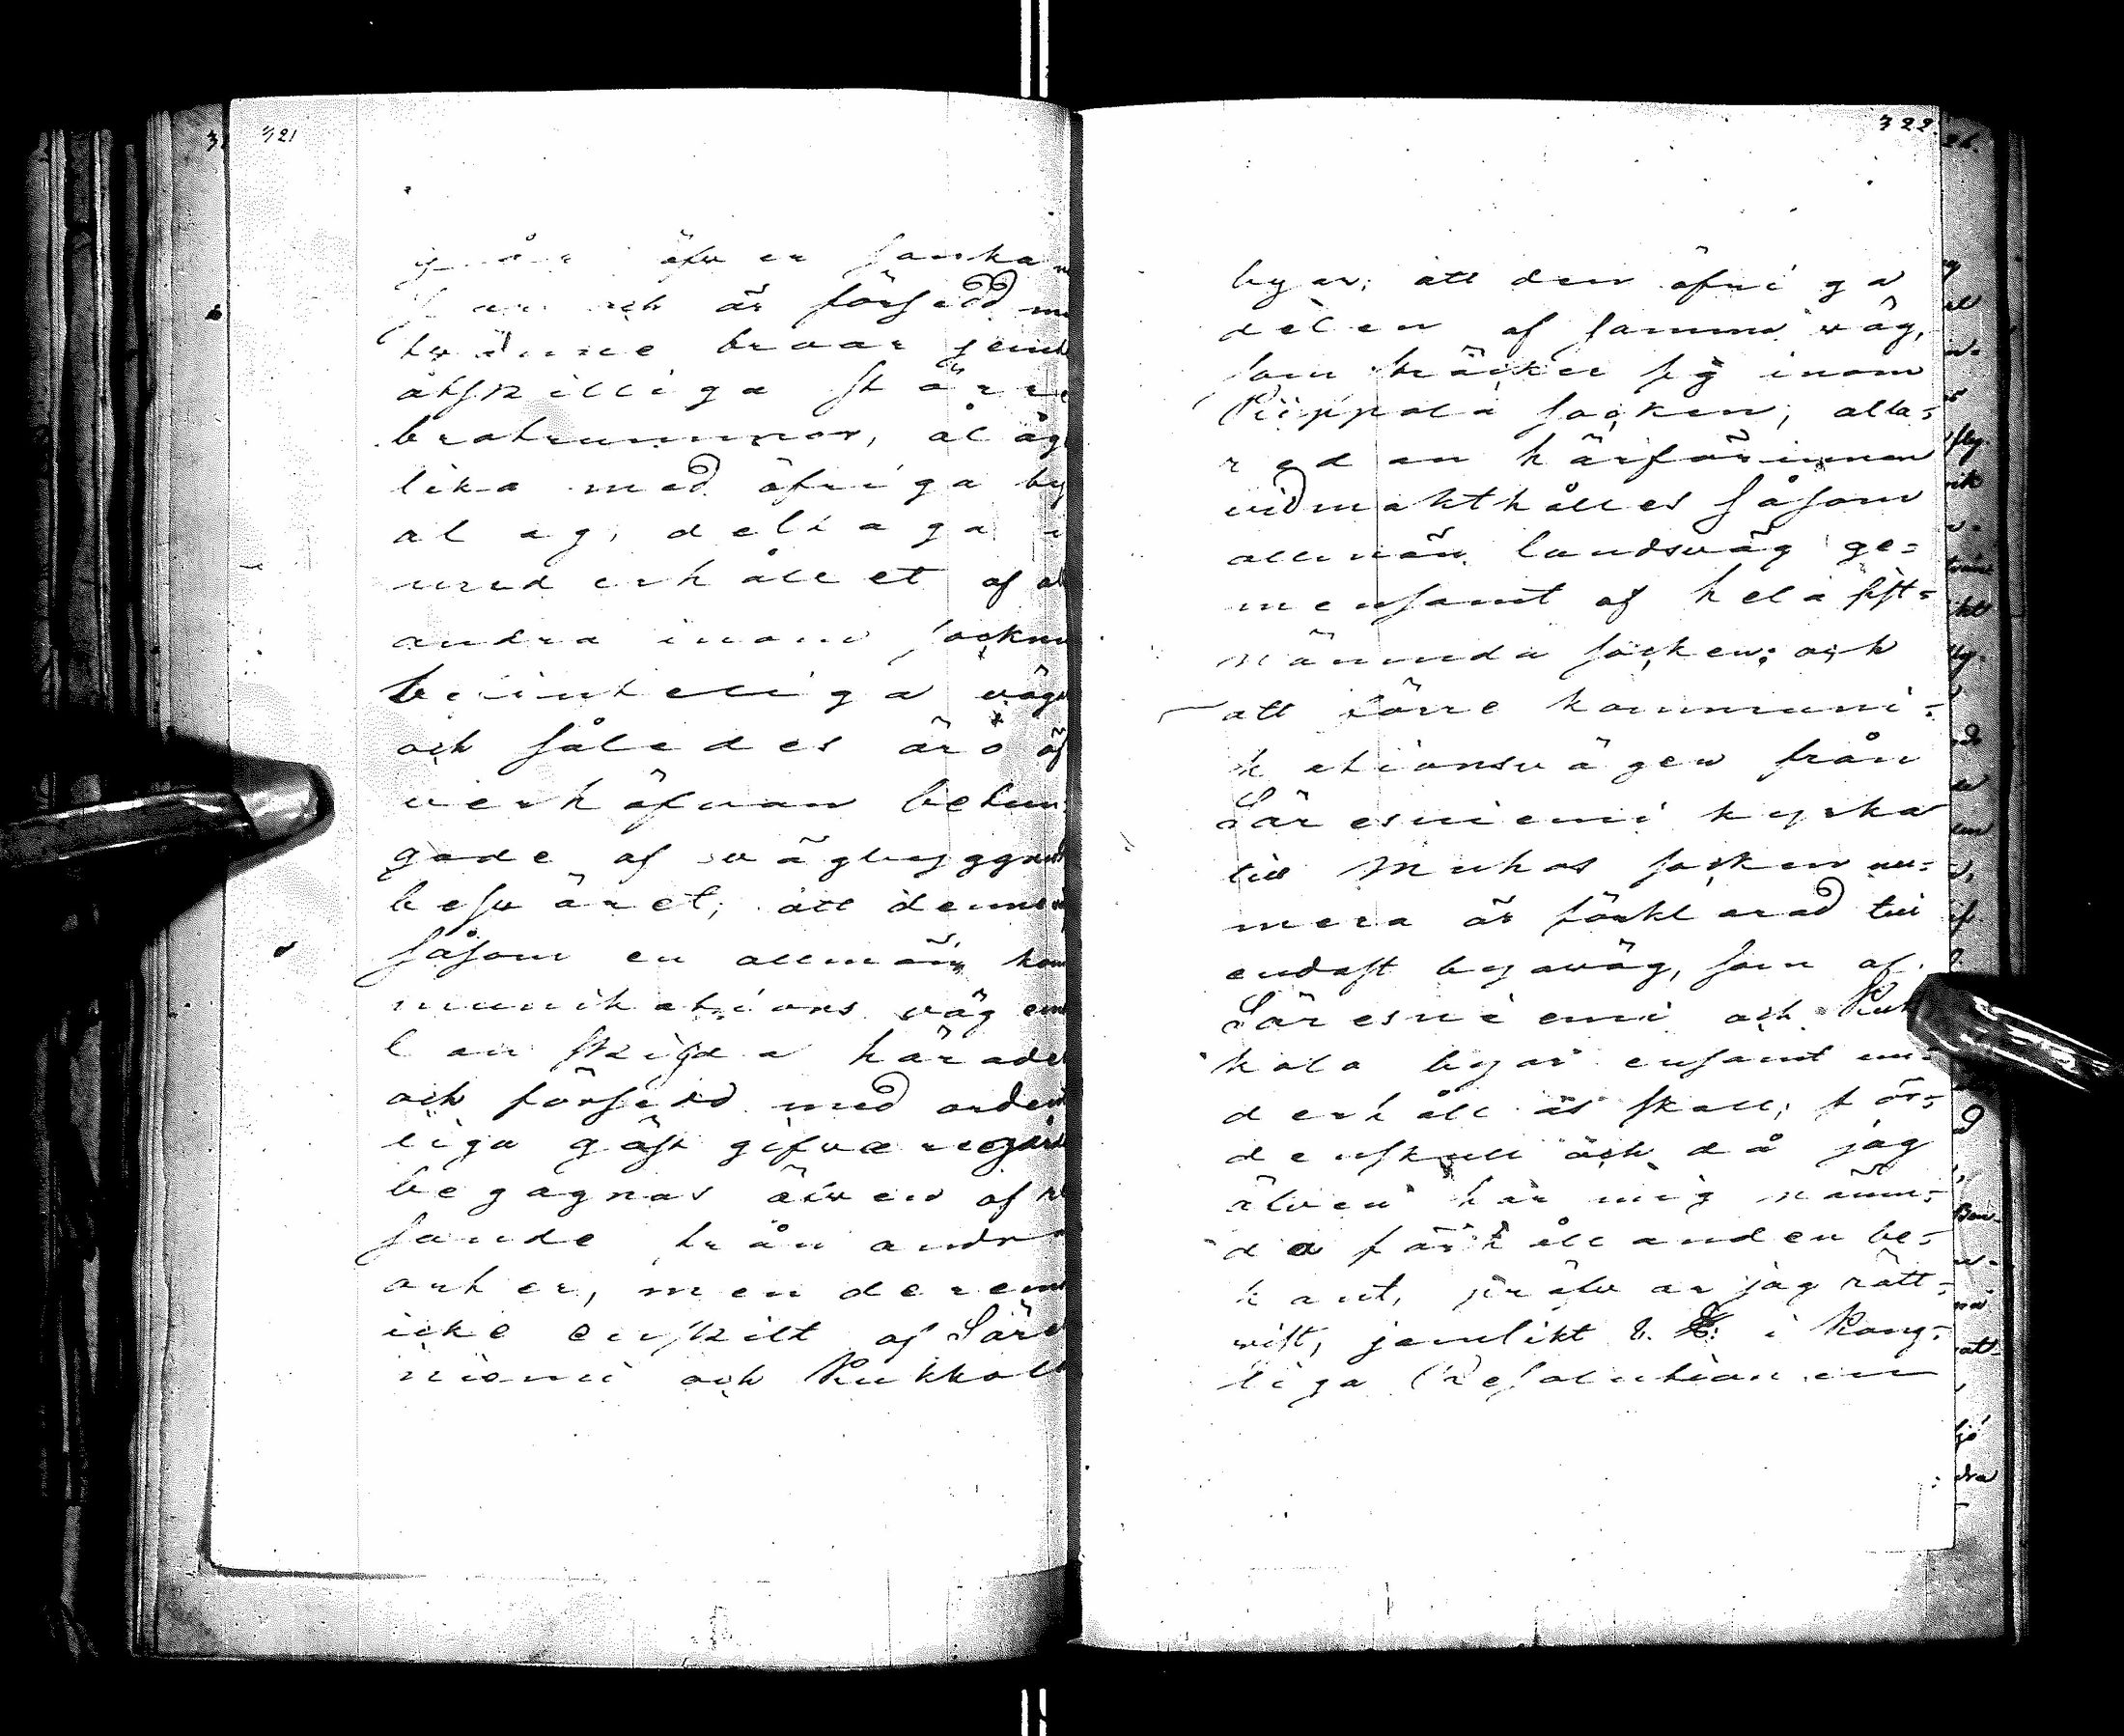 321
går öfver sanka m
och är försedd m
tvänne broar jemt
åtskilliga större
brotrummor, ålåg
lika med öfriga by
al ag, deltaga i
underhållet af al
andra inom sockne
befinteliga väga
och således äro öf
verhöfvan betun
gade af vägbyggnads
besväret; att denna
såsom en allmän kom
munikations väg em
lan skilda härader
och försedd med ordent
liga gästgifvaregår
begagnas äfven af re
sande från andra
orter, men deremo
icke enskilt af Säre
niemi och Kukkola
322.
byar; att den öfriga
delen af samma väg,
som sträcker sig inom
Piippola socken, alla-
redan härförinnan
vidmakthålles såsom
allmän landsväg ge-
mensamt af hela sist-
nämnda socken; och
att förre kommuni-
kationsvägen från
Säresniemi kyrka
till Muhos socken nu-
mera är förklarad till
endast byaväg, som af
Säresniemi och Kuk
kola byar ensamt un-
derhållas skall; för-
denskull och då jag
älven har mig nämn-
da förhållanden be-
kant, pröfvar jag rätt-
vist, jemlikt i Kong-
liga Resolutionen